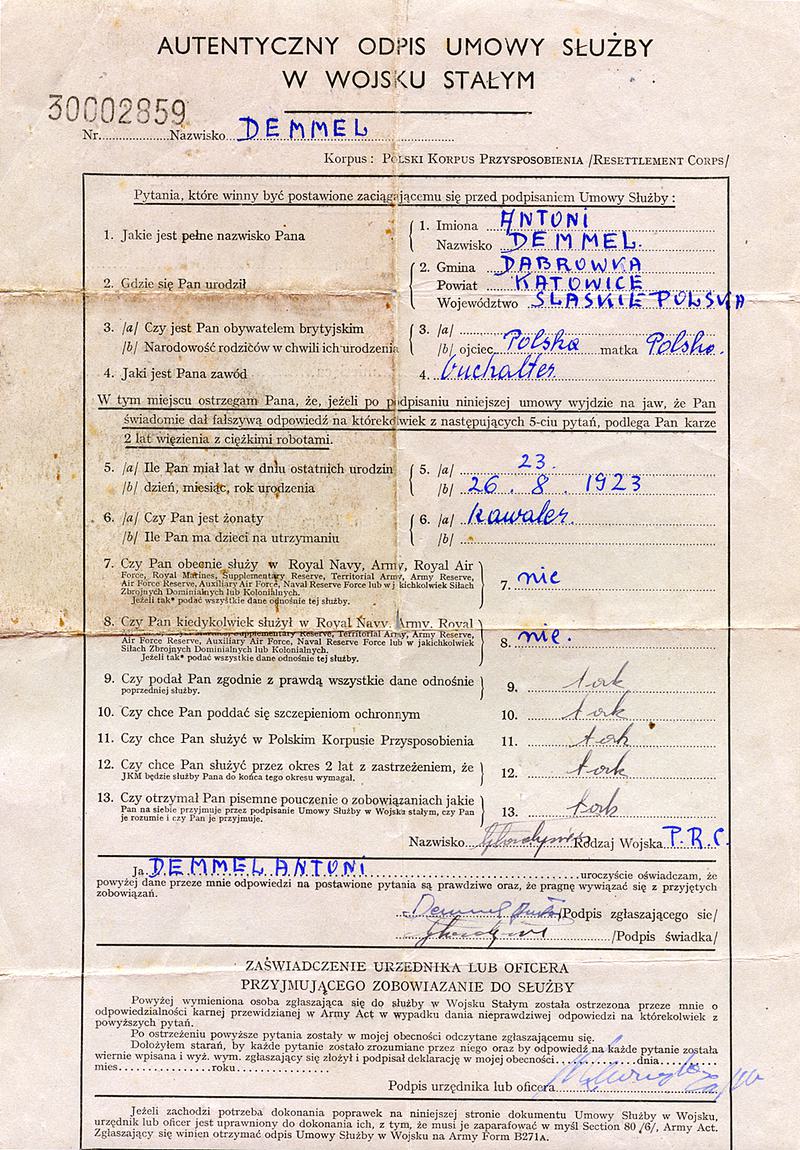 AUTENTYCZNY ODPIS UMOWY SŁUŻBY
W WOJSKU STAŁYM
30002859
Nr..................Nazwisko DEMMEL
Korpus : POLSKI KORPUS PRZYSPOSOBIENIA /RESETTLEMENT CORPS/
Pytania, które winny być postawione zaciągającemu się przed podpisaniem Umowy Służby :
1. Jakie jest pełne nazwisko Pana { 1. Imiona ANTONI
Nazwisko DEMMEL.
2. Gdzie się Pan urodził { 2. Gmina DABROWKA
Powiat KATOWICE
Województwo SLASKIE POLSKA
3. /a/ Czy jest Pan obywatelem brytyjskim { 3. /a/
/b/ Narodowość rodziców w chwili ich urodzenia /b/ ojciec Polska matka Polska.
4. Jaki jest Pana zawód 4. buchalter
W tym miejscu ostrzegam Pana, że, jeżeli po podpisaniu niniejszej umowy wyjdzie na jaw, że Pan
świadomie dał fałszywą odpowiedź na którekolwiek z następujących 5-ciu pytań, podlega Pan karze
2 lat więzienia z ciężkimi robotami.
5. /a/ Ile Pan miał lat w dniu ostatnich urodzin { 5. /a/ 23.
/b/ dzień, miesiąc, rok urodzenia /b/ 26. 8. 1923
6. /a/ Czy Pan jest żonaty { 6. /a/ kawaler.
/b/ Ile Pan ma dzieci na utrzymaniu /b/
7. Czy Pan obecnie służy w Royal Navy, Army, Royal Air
Force, Royal Marines, Supplementary Reserve, Territorial Army, Army Reserve,
Air Force Reserve, Auxiliary Air Force, Naval Reserve Force lub w jakichkolwiek Siłach
Zbrojnych Dominialnych lub Kolonialnych.
Jeżeli tak* podać wszystkie dane odnośnie tej służby.
7. nie
8. Czy Pan kiedykolwiek służył w Royal Navy, Army, Royal
Supplementary Reserve, Territorial Army, Army Reserve,
Air Force Reserve, Auxiliary Air Force, Naval Reserve Force lub w jakichkolwiek
Siłach Zbrojnych Dominialnych lub Kolonialnych.
Jeżeli tak* podać wszystkie dane odnośnie tej służby.
8. nie.
9. Czy podał Pan zgodnie z prawdą wszystkie dane odnośnie
poprzedniej służby.
9. tak
10. Czy chce Pan poddać się szczepieniom ochronnym 10. tak
11. Czy chce Pan służyć w Polskim Korpusie Przysposobienia 11. tak
12. Czy chce Pan służyć przez okres 2 lat z zastrzeżeniem, że
JKM będzie służby Pana do końca tego okresu wymagał.
12. tak
13. Czy otrzymał Pan pisemne pouczenie o zobowiązaniach jakie
Pan na siebie przyjmuje przez podpisanie Umowy Służby w Wojsku stałym, czy Pan
je rozumie i czy Pan je przyjmuje.
13. tak
Nazwisko Rodzaj Wojska P.R.C.
Ja DEMMEL ANTONI uroczyście oświadczam, że
powyżej dane przeze mnie odpowiedzi na postawione pytania są prawdziwe oraz, że pragnę wywiązać się z przyjętych
zobowiązań.
Demmel /Podpis zgłaszającego sie/
/Podpis świadka/
ZAŚWIADCZENIE URZEDNIKA LUB OFICERA
PRZYJMUJĄCEGO ZOBOWIAZANIE DO SŁUŻBY
Powyżej wymieniona osoba zgłaszająca się do służby w Wojsku Stałym została ostrzeżona przeze mnie o
odpowiedzialności karnej przewidzianej w Army Act w wypadku dania nieprawdziwej odpowiedzi na którekolwiek z
powyższych pytań.
Po ostrzeżeniu powyższe pytania zostały w mojej obecności odczytane zgłaszającemu się.
Dołożyłem starań, by każde pytanie zostało zrozumiane przez niego oraz by odpowiedź na każde pytanie została
wiernie wpisana i wyż. wym. zgłaszający się złożył i podpisał deklarację w mojej obecności..........dnia..........
mies....................roku....................
Podpis urzędnika lub oficera
Jeżeli zachodzi potrzeba dokonania poprawek na niniejszej stronie dokumentu Umowy Służby w Wojsku,
urzędnik lub oficer jest uprawniony do dokonania ich, z tym, że musi je zaparafować w myśl Section 80 /6/, Army Act.
Zgłaszający się winien otrzymać odpis Umowy Służby w Wojsku na Army Form B271A.